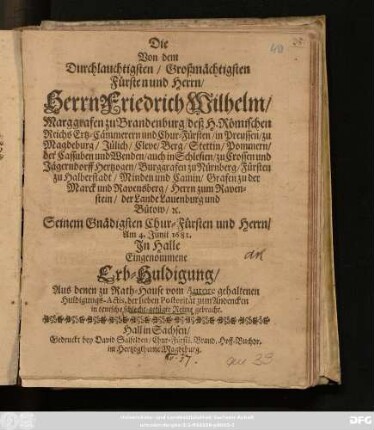 Die
Von dem
Durchlauchtigsten / Großmächtigsten
Fürsten und Herrn /
Herrn Friedrich Wilhelm /
Marggrafen zu Brandenburg / deß H. Römischen
Reichs Ertz-Cämmerern und Chur-Fürsten / in Preussen / zu
Magdeburg / Jülich / Cleve / Berg / Stettin / Pommern /
der Cassuben und Wenden / auch in Schlesien / zu Crossen und
Jägerndorff Hertzogen / Burggrafen zu Nürnberg / Fürsten
zu Halberstadt / Minden und Camin / Grafen zu der
Marck und Ravensberg / Herrn zum Raven-
stein / der Lande Lauenburg und
Bütow / ꝛc.
Seinem Gnädigsten Chur-Fürsten und Herrn /
Am 4. Junii 1681.
In Halle
Eingenommene
Erb-Huldigung /
Aus denen zu Rath-Hause vom gehaltenen
Huldigungs-Actis, der lieben Posterität zum Andencken
in teutsche Reime gebracht.
Hall in Sachsen /
Gedruckt bey David Salfelden / Chur-Fürstl. Brand. Hoff-Buchdr.
im Hertzogthume Magdeburg.